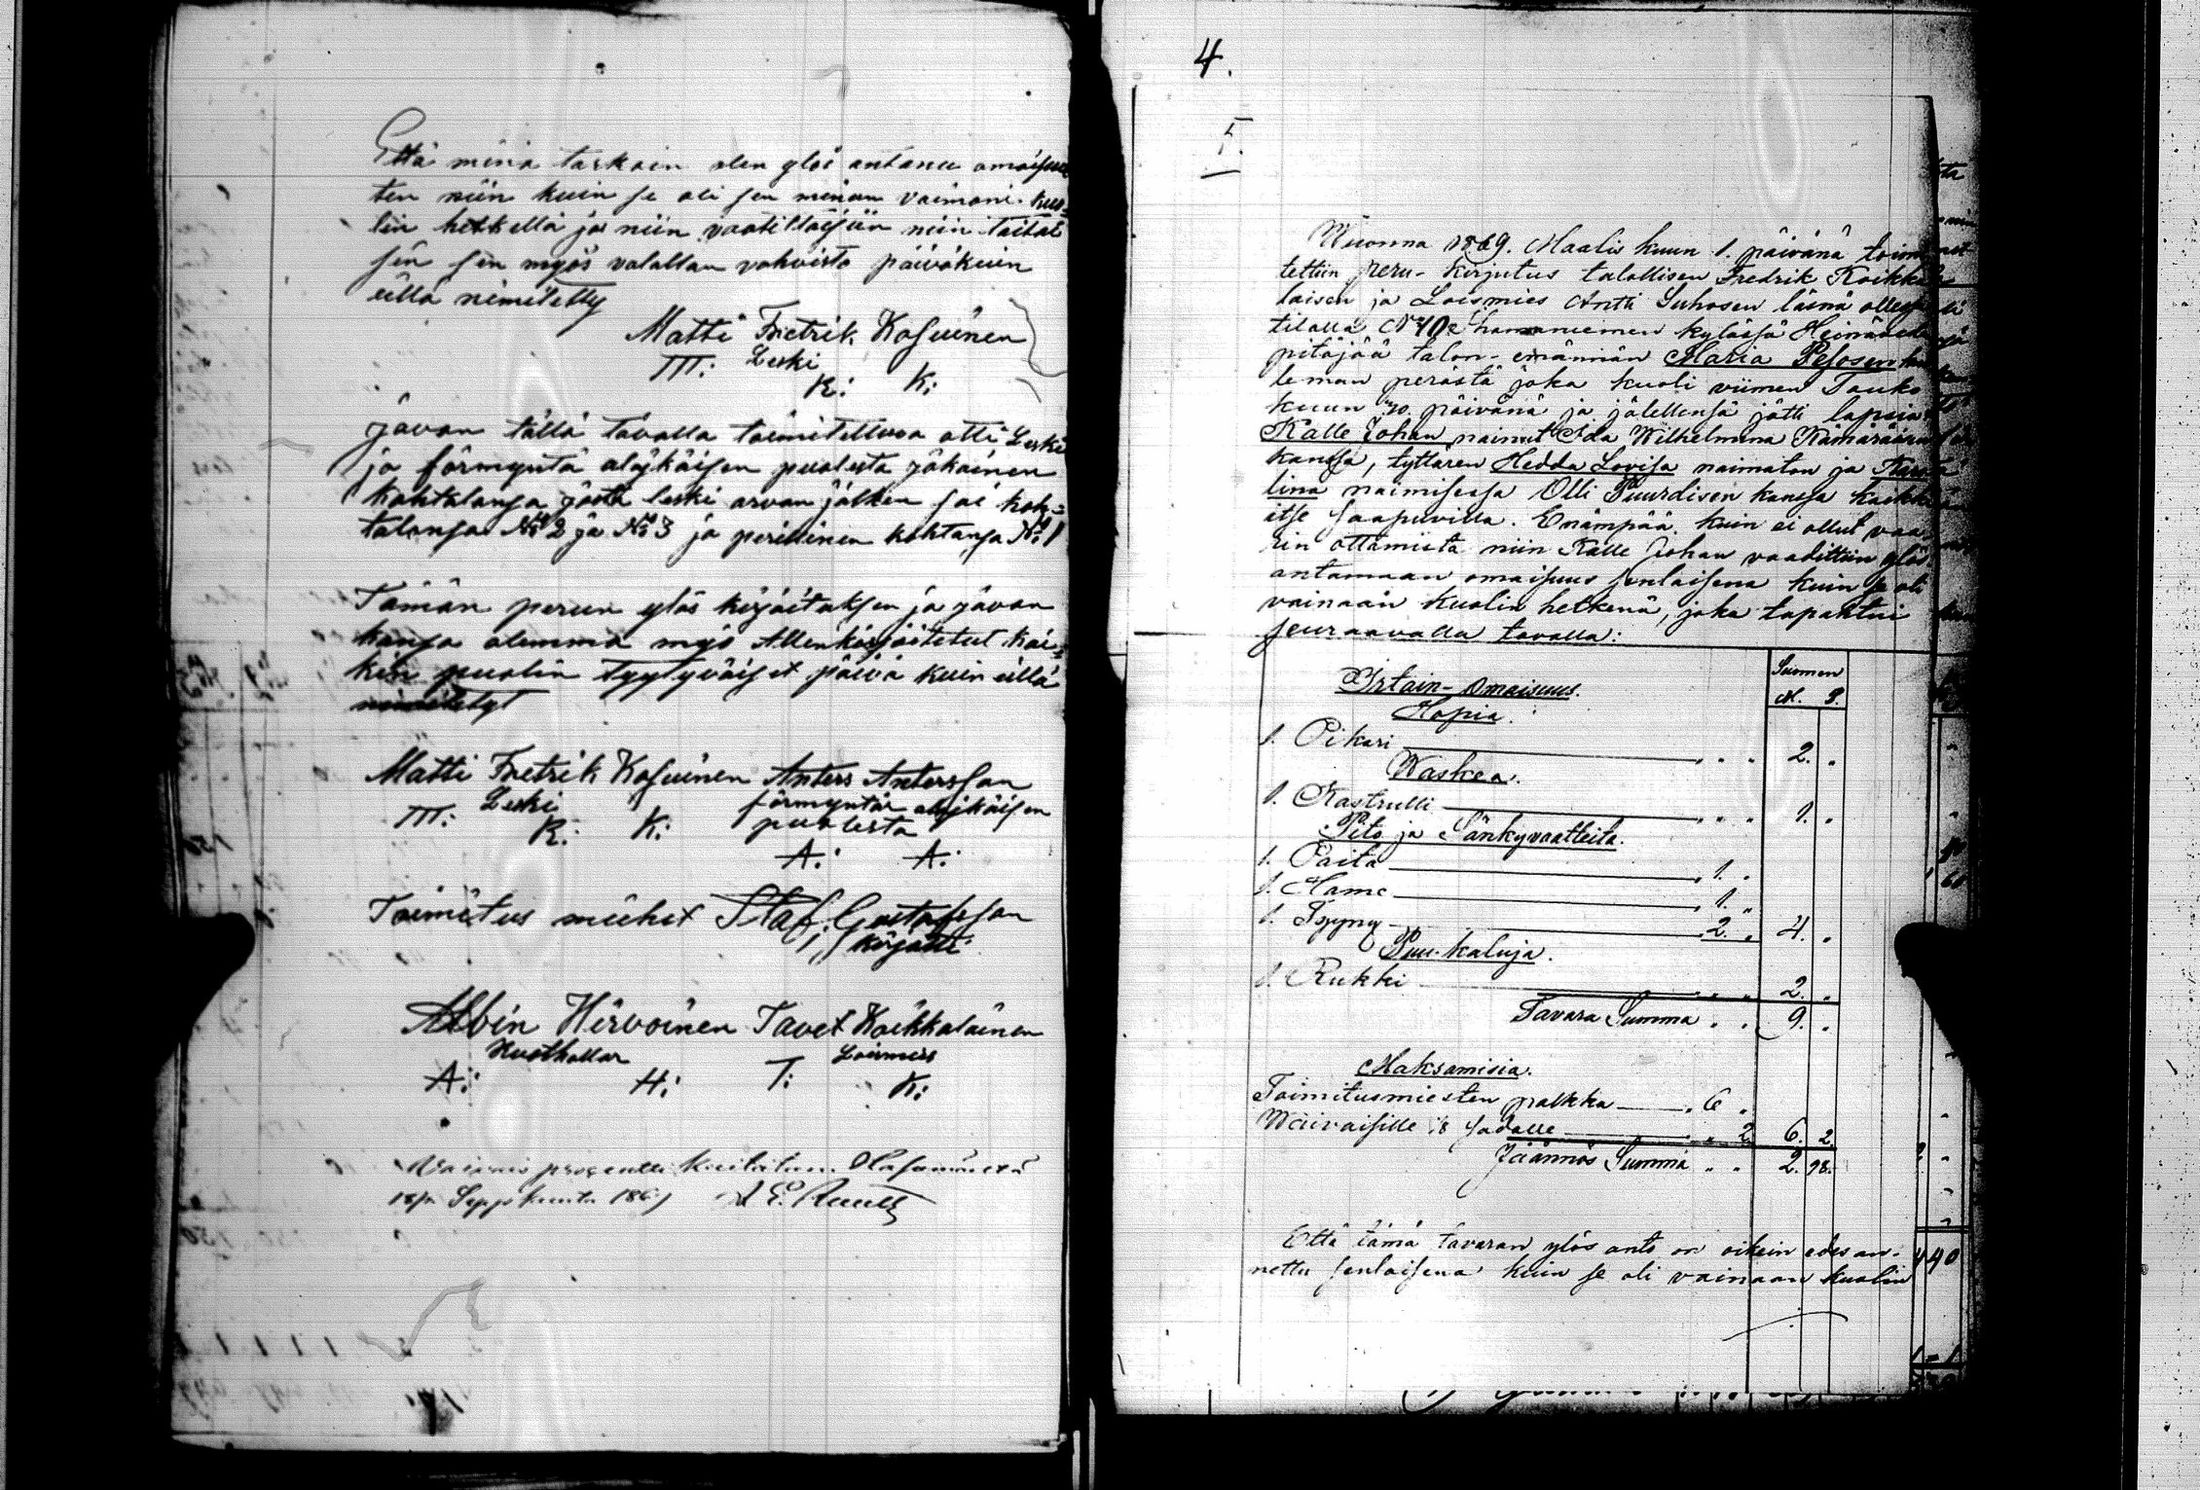 Että minä tarkoin olen ylös antanu omaisuu
ten niin kuin se oli sen minun vaimoni kuo=
lin hetkellä ja niin vaatittaisiin niin taitai
sen sen myös valallan vahvista päiväkuin
ällä nimitetty
Matti Fretrik Kosuinen
Leski
M: R: K:
javan tällä tavalla toimitettuva otti Leski
ja förmyntä alaikäisen puolesta jokainen
kohtalansa josta leski arvan jälken sai koh=
talansa No 2 ja No 3 ja perillinen kohtansa No 1
Tämän perun ylös kirjoituksen ja javon
kansa olemma myös Allenkirjoitetut kai=
kin puolin tyytyväiset päivä kuin ällä
nimitetyt
Matti Fretrik Kosuinen Anters Antersson
Leski förmyntär alaikäisen
M: R: K: puolesta
A: A:
Toimitus miehet Staf: Gustafsson
kirjotti
Albin Hirvoinen Tavet Koikkalainen
Loismies
A: H: T: K:
prosentti kuitataan
Syyskuuta 186
4.
5.
Wuonna 1869. Maalis kuun 1. päivänä toimi
tettiin peru-kirjutus talollisen Fredrik Koikka
laisen ja Loismies Antti Suhosen läsnä ollessa
tilalla No 10 kylässä Heinäveden
pitäjää talon-emännän Maria Pesosen kuo
leman perästä joka kuoli viimen Touko
kuun 20. päivänä ja jälellensä jätti lapsia
Kalle Johan nainut Ida Wilhelmina Kämäräisen
kanssa, tyttären Hedda Lovisa naimaton ja Karo
lina naimisessa Olli Puurdisen kanssa kaikki
itse saapuvilla. Enämpää kuin ei ollut vaa
rin ottamista niin Kalle Johan vaadittiin ylös
antamaan omaisuus senlaisena kuin se oli
vainaan kuolin hetkenä, joka tapahtui
seuraavalla tavalla:
Suomen
M. P.
Irtain-omaisuus.
Hopia.
1. Pikari 2. "
Waskea.
1. Kastrulli 1. "
Pito ja Sänkyvaatteita.
1. Paita 1. "
1. Hame 1. "
1. Tyyny 2. " 4. "
Puu-kaluja.
1. Rukki 2. "
Tavara Summa 9. "
Maksamisia.
Toimitusmiesten palkka 6 "
Waivaisille sadalle 2 6. 2.
Jäännös Summa 2. 98.
Että tämä tavaran ylös anto on oikein edes an-
nettu senlaisena kuin se oli vainaan kuolin